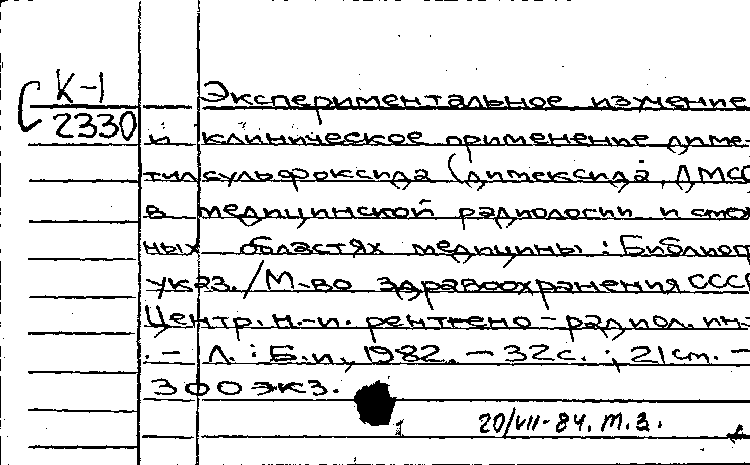 К-1
С 2330
Экспериментальное изучение
и клиническое применение диме-
тилсульфоксида (димексида, ДМСО
в медицинской радиологии и смеж
ных областях медицины : Библиог
указ. / М-во здравоохранения СССР
Центр. н.-и. рентгено-радиол. ин-
. – Л. : Б.и., 1982. – 32с. ; 21см. –
300 экз.
20/VII-84. т.з.